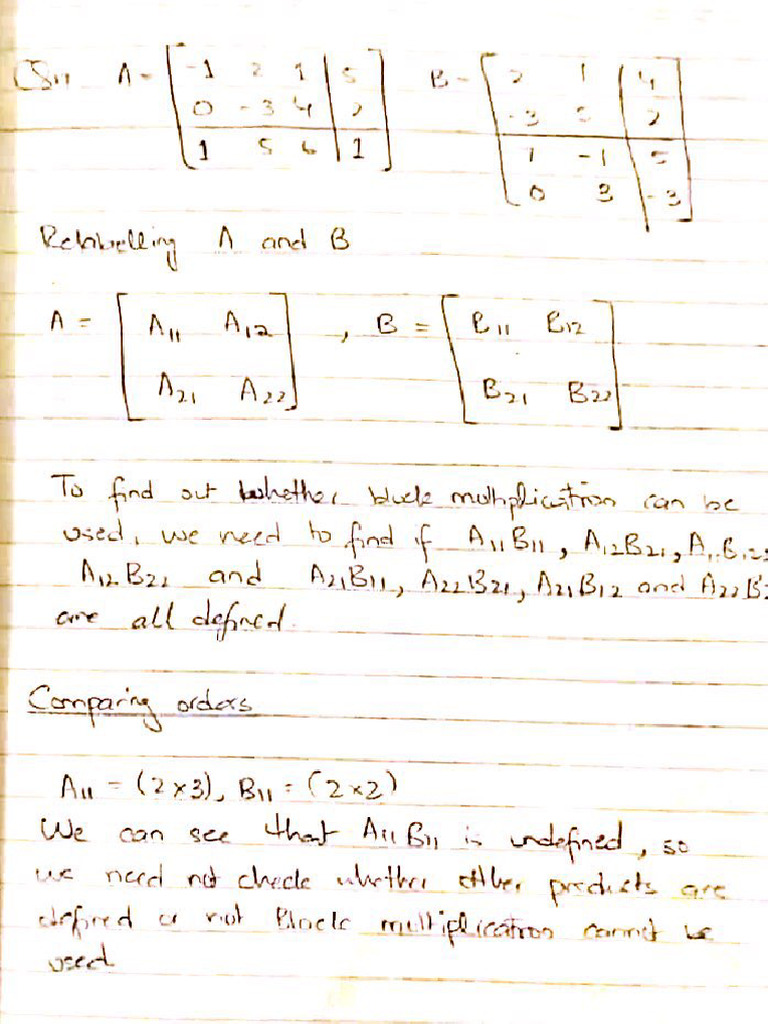 A = [ -1 2 1 | 5 B = [ 2 1 | 4
0 -3 4 | 2 -3 5 | 2
1 5 6 | 1 ] 7 -1 5
0 3 -3 ]
Relabelling A and B
A = [ A11 A12 , B = [ B11 B12
A21 A22 ] B21 B22 ]
To find out whether block multiplication can be
used, we need to find if A11B11, A12B21, A11B12,
A12B22 and A21B11, A22B21, A21B12 and A22B
are all defined.
Comparing orders
A11 = (2×3), B11 = (2×2)
We can see that A11B11 is undefined, so
we need not check whether other products are
defined or not Block multiplication cannot be
used